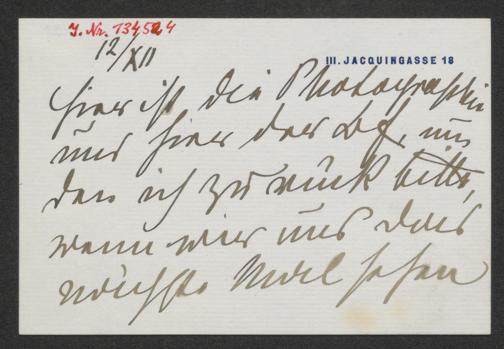 J. Nr. 134524
12/XII
III. JACQUINGASSE 18
hier ist die Photographie
und hier der Bf., um
den ich zurück bitte,
wenn wir uns das
nächste Mal sehen